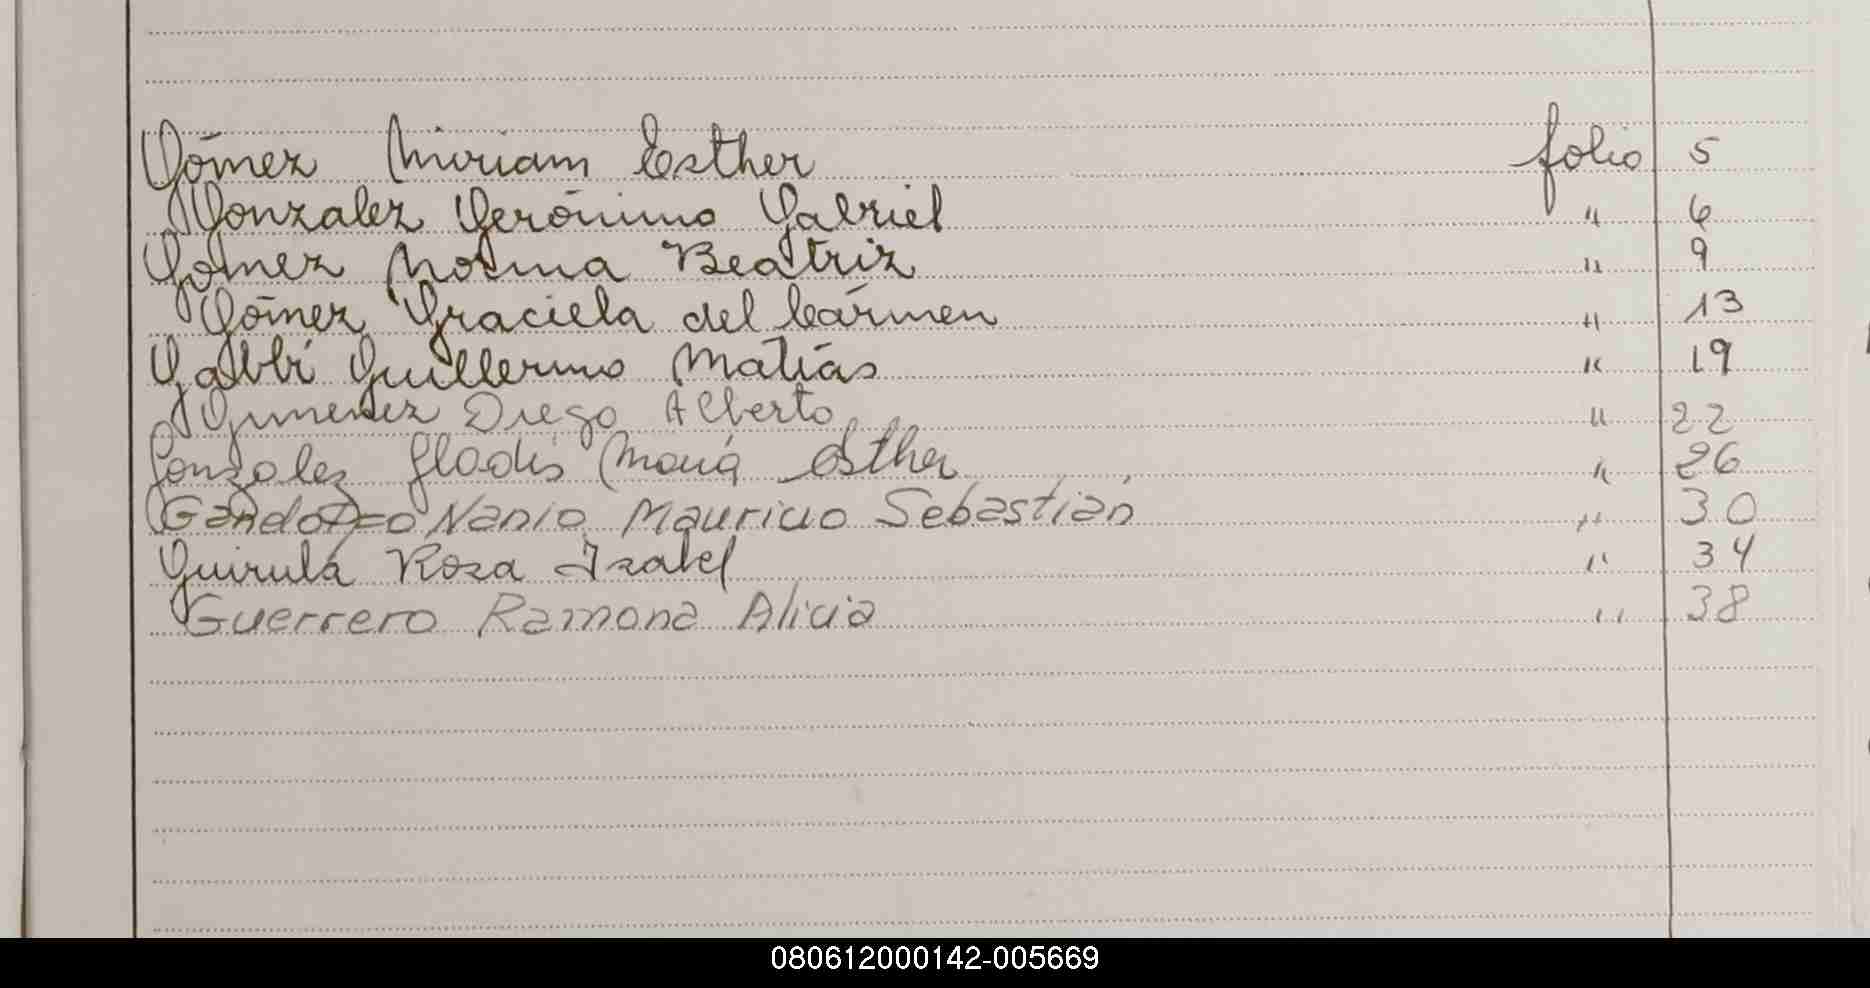 Gómez Miriam Esther folio 5
Gonzalez Gerónimo Gabriel " 6
Gomez Norma Beatriz " 9
Gómez Graciela del Cármen " 13
Gabbi Guillermo Matías " 19
Gimenez Diego Alberto " 22
Gonzalez Gladis María Esther " 26
Nanio Mauricio Sebastián " 30
Guirula Rosa Isabel " 34
Guerrero Ramona Alicia " 38
080612000142-005669